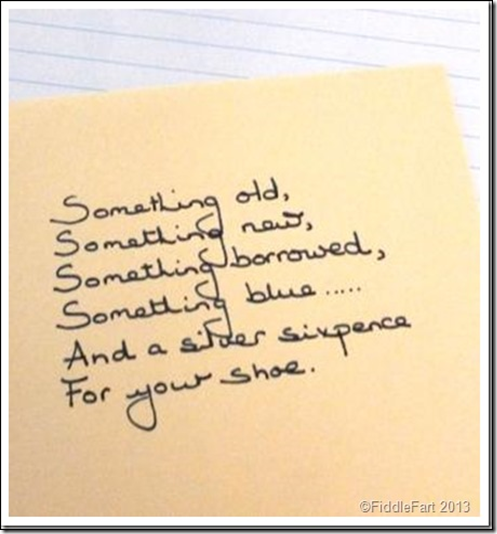 Something old,
Something new,
Something borrowed,
Something blue.....
And a silver sixpence
For your shoe.
©FiddleFart 2013